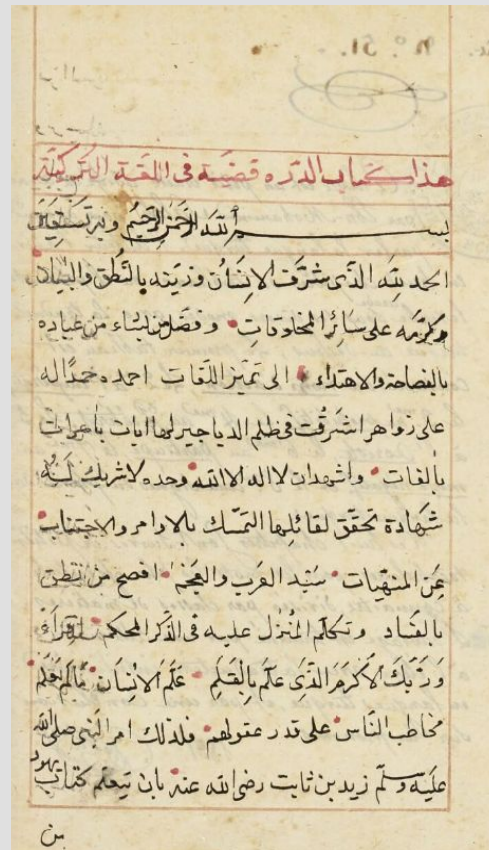 Nº. 51.
هذا كتاب الدرة قضية فى اللغة التركية
بسم الله الرحمن الرحيم وبه نستعين
الحمد لله الذى شرف الانسان وزينه بالنطق والبيان
وكرمه على سائر المخلوقات وفضل من يشاء من عباده
بالفصاحة والاهتداء الى تميز اللغات احمده حمدا له
على زواهر اشرقت فى ظلم الدياجير لها ايات باهرات
بالغات واشهد ان لا اله الا الله وحده لا شريك له
شهادة تحقق لقائلها التمسك بالاوامر والاجتناب
عن المنهيات سيد العرب والعجم افصح من نطق
بالضاد وتكلم المنزل عليه فى الذكر المحكم اقراء
وربك الاكرم الذى علم بالقلم علم الانسان مالم يعلم
مخاطب الناس على قدر عقولهم فلذلك امر النبى صلى الله
عليه وسلم زيد بن ثابت رضى الله عنه بان يتعلم كتاب يهود